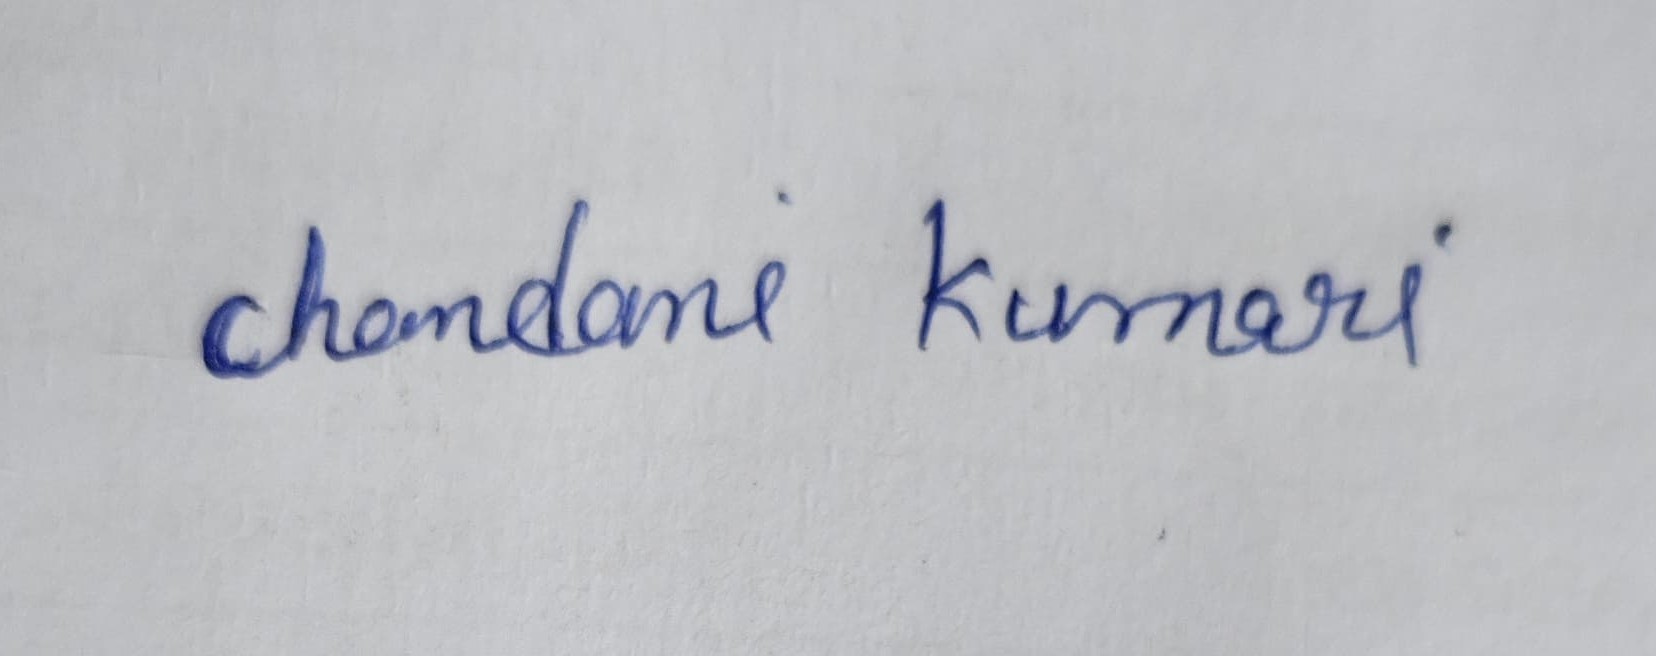 chandani kumari